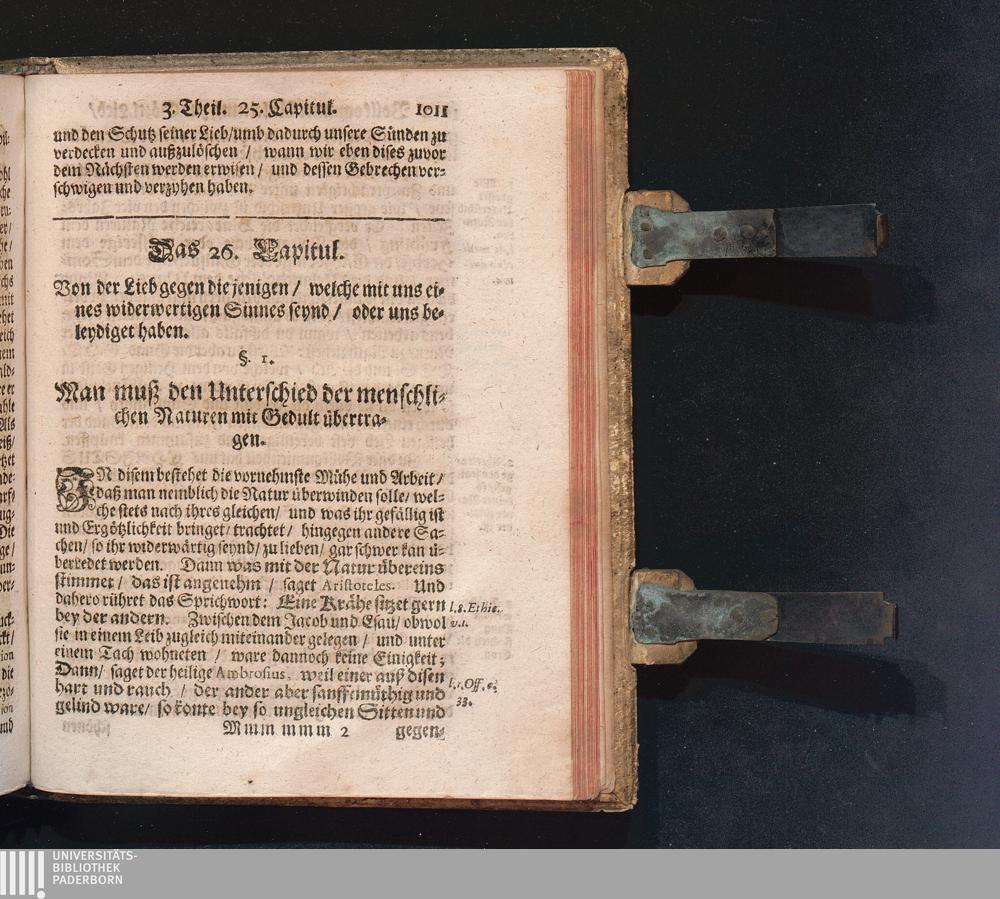 3. Theil. 25. Capitul. 1011
und den Schutz seiner Lieb/umb dadurch unsere Sünden zu
verdecken und außzulöschen / wann wir eben dises zuvor
dem Nächsten werden erwisen / und dessen Gebrechen ver-
schwigen und verzyhen haben.
Das 26. Capitul.
Von der Lieb gegen die jenigen / welche mit uns ei-
nes widerwertigen Sinnes seynd / oder uns be-
leydiget haben.
§. 1.
Man muß den Unterschied der menschli-
chen Naturen mit Gedult übertra-
gen.
IN disem bestehet die vornehmste Mühe und Arbeit /
daß man nemblich die Natur überwinden solle/ wel-
che stets nach ihres gleichen / und was ihr gefällig ist
und Ergötzlichkeit bringet/ trachtet / hingegen andere Sa-
chen/ so ihr widerwärtig seynd/ zu lieben/ gar schwer kan ü-
berredet werden. Dann was mit der Natur übereins
stimmet / das ist angenehm / saget Aristoteles. Und
dahero rühret das Sprichwort: Eine Krähe sitzet gern
bey der andern. Zwischen dem Jacob und Esau/ obwol
sie in einem Leib zugleich miteinander gelegen / und unter
einem Tach wohneten / ware dannoch keine Einigkeit;
Dann/ saget der heilige Ambrosius, weil einer auß disen
hart und rauch / der ander aber sanfftmüthig und
gelind ware/ so konte bey so ungleichen Sitten und
Mmm mmm 2 gegen-
l. 8. Ethic.
c. 1.
l. 1. Off. c.
33.
UNIVERSITÄTS-
BIBLIOTHEK
PADERBORN